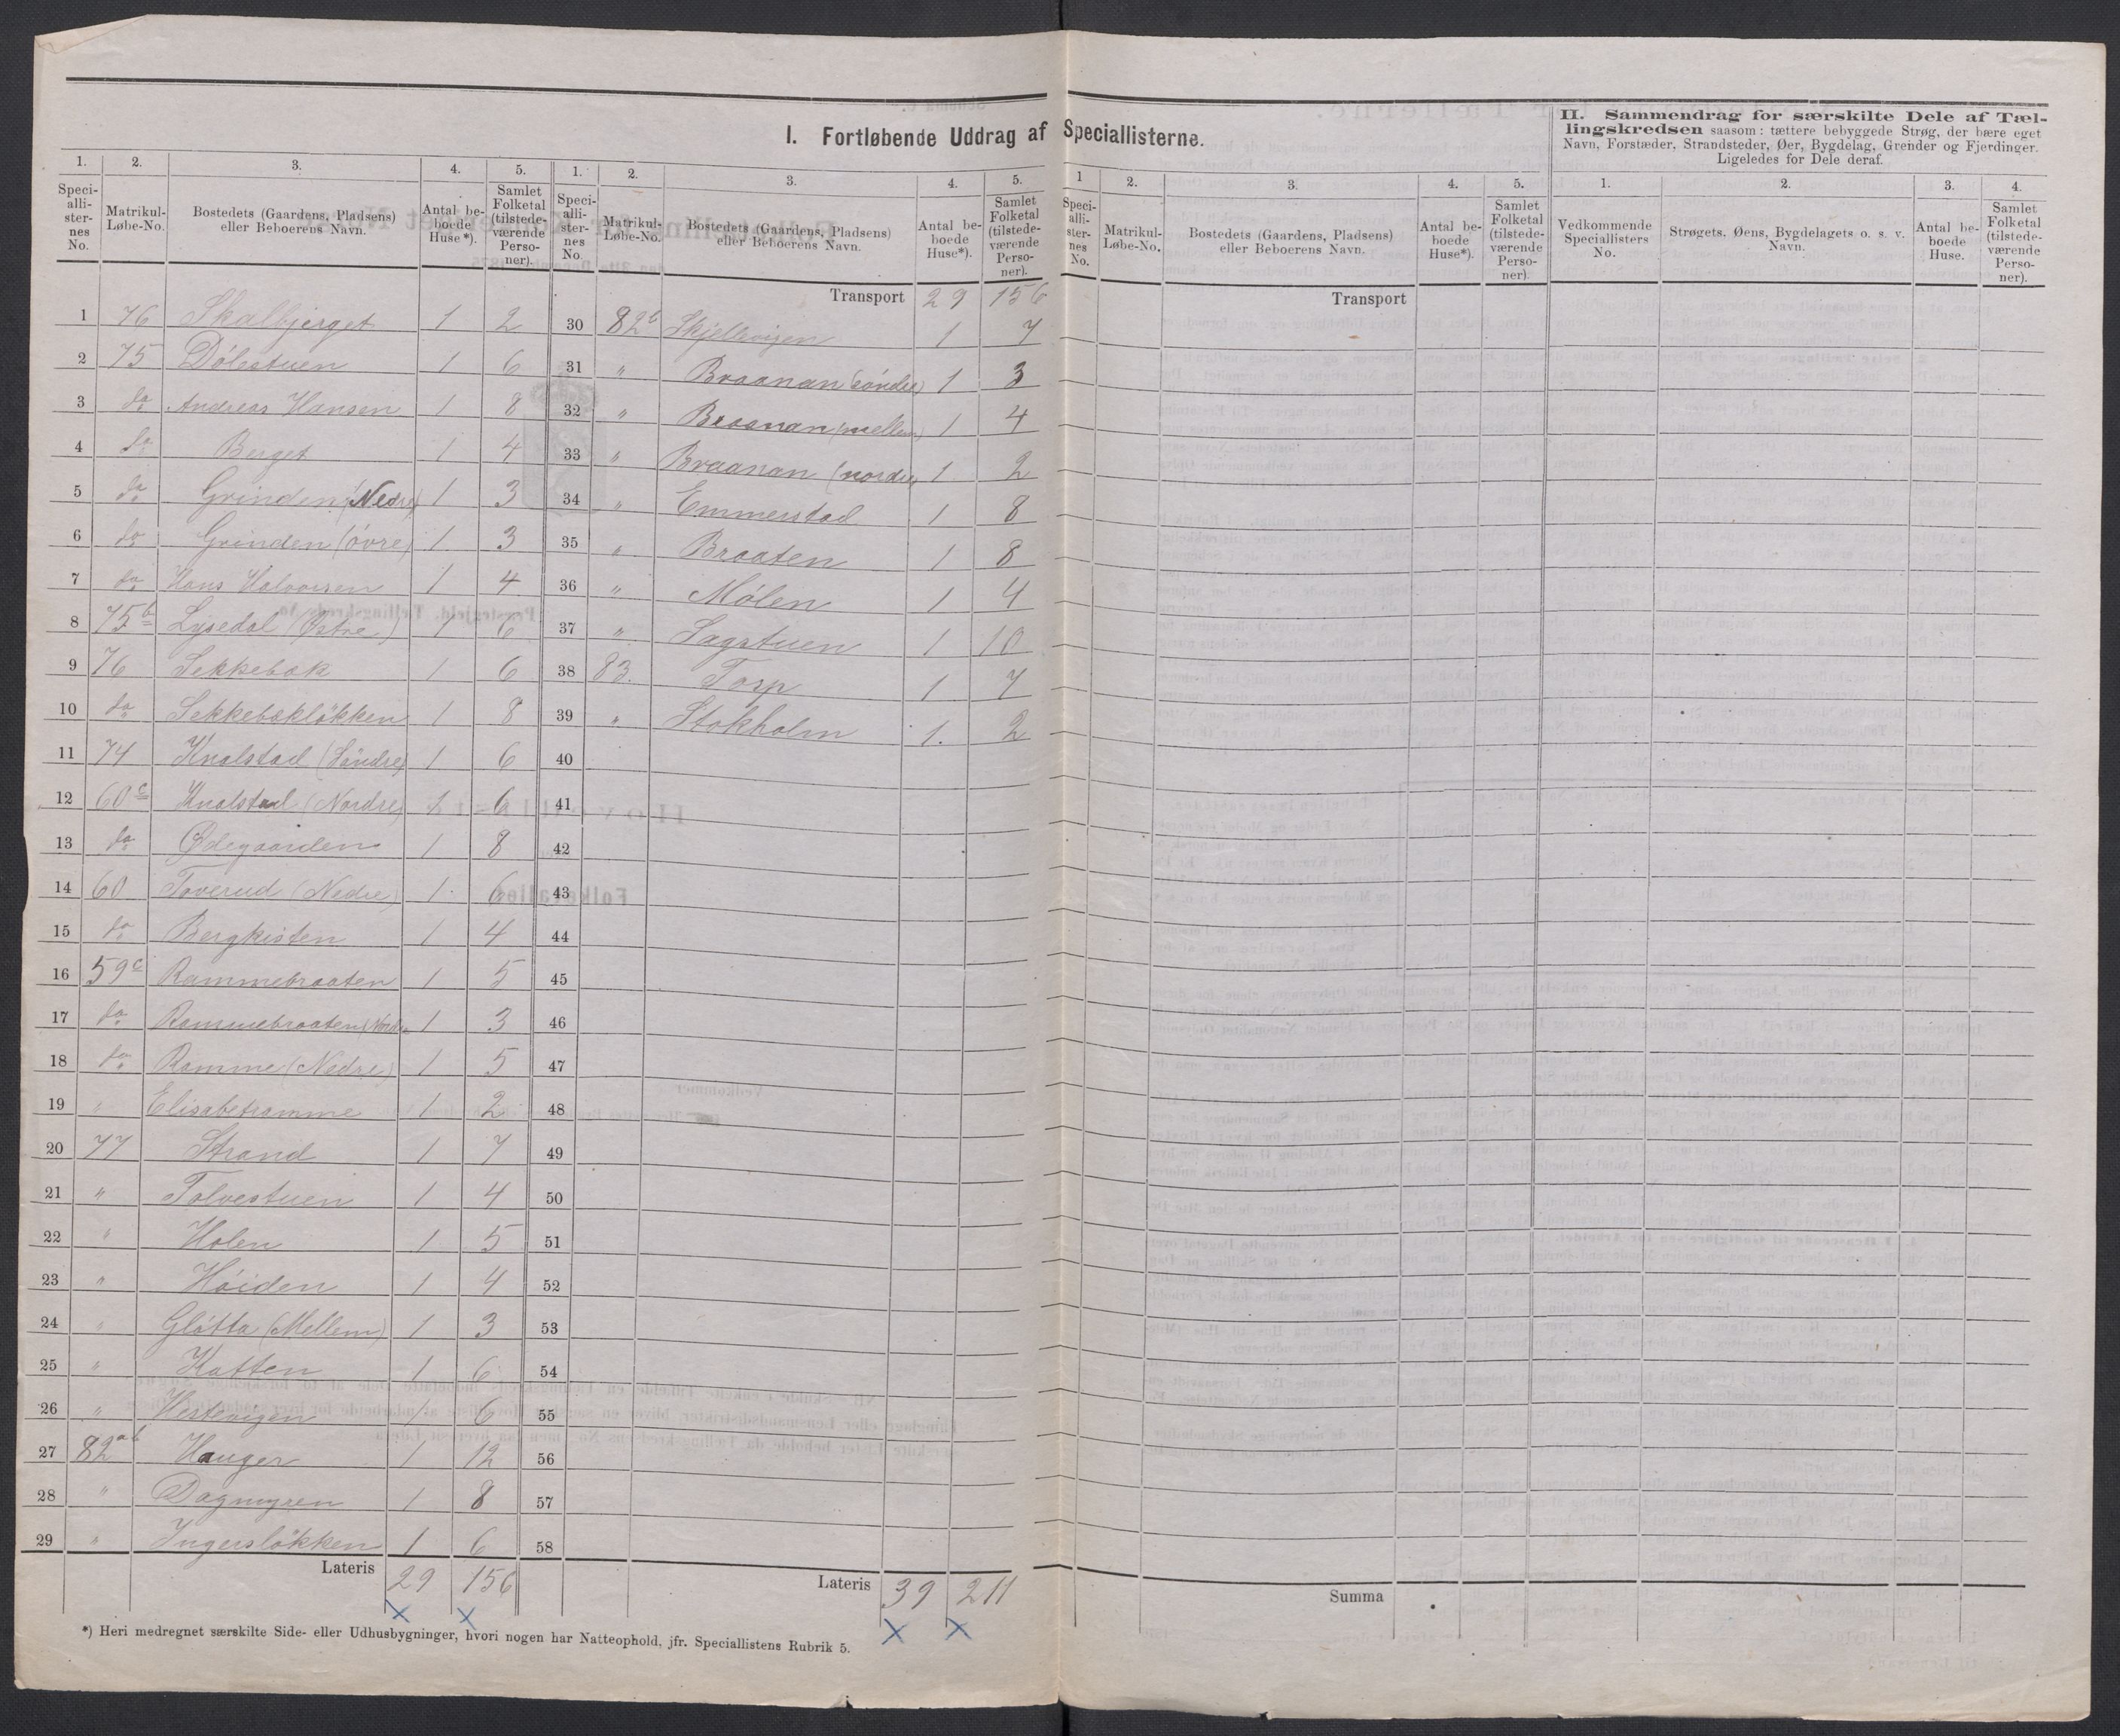 I. Fortløbende Uddrag af Speciallisterne.
II. Sammendrag for særskilte Dele af Tæl-
lingskredsen saasom: tættere bebyggede Strøg, der bære eget
Navn, Forstæder, Strandsteder, Øer, Bygdelag, Grender og Fjerdinger.
Ligeledes for Dele deraf.
1. 2. 3. 4. 5.
Speci-alli-ster-nes No. Matrikul-Løbe-No. Bostedets (Gaardens, Pladsens) eller Beboerens Navn. Antal be-boede Huse*). Samlet Folketal (tilstede-værende Perso-ner).
1 76 Skalbjerget 1 2
2 75 Dölestuen 1 6
3 do Andreas Hansen 1 8
4 do Berget 1 4
5 do Grinden (Nedre) 1 3
6 do Grinden (övre) 1 3
7 do Hans Halvorsen 1 4
8 75b Lysedal (Østre) 1 6
9 76 Sekkebæk 1 6
10 do Sekkebæklökken 1 8
11 74 Knalstad (Söndre) 1 6
12 60c Knalstad (Nordre) 1 6
13 do Ødegaarden 1 8
14 60 Toverud (Nedre) 1 6
15 do Bergkisten 1 4
16 59c Rammebraaten 1 5
17 do Rammebraaten (Nordre 1 3
18 do Ramme (Nedre) 1 5
19 " Elisabetramme 1 2
20 77 Strand 1 7
21 " Tolvestuen 1 4
22 " Holen 1 5
23 " Höiden 1 4
24 " Glötta (Mellem) 1 3
25 " Katten 1 6
26 " Vestevigen 1 6
27 82ab Hauger 1 12
28 " Dagmyren 1 8
29 " Ingerslökken 1 6
Lateris 29 156
1. 2. 3. 4. 5.
Speci-alli-ster-nes No. Matrikul-Løbe-No. Bostedets (Gaardens, Pladsens) eller Beboerens Navn. Antal be-boede Huse*). Samlet Folketal (tilstede-værende Perso-ner).
Transport 29 156
30 82b Skjellevigen 1 7
31 " Braanan (söndre) 1 3
32 " Braanan (mellem) 1 4
33 " Braanan (nordre) 1 2
34 " Emmerstad 1 8
35 " Braaten 1 8
36 " Mölen 1 4
37 " Sagstuen 1 10
38 83. Torp 1 7
39 " Stokholm 1. 2
40
41
42
43
44
45
46
47
48
49
50
51
52
53
54
55
56
57
58
Lateris 39 211
*) Heri medregnet særskilte Side- eller Udhusbygninger, hvori nogen har Natteophold, jfr. Speciallistens Rubrik 5.
1 2. 3. 4. 5.
Speci-alli-ster-nes No. Matrikul-Løbe-No. Bostedets (Gaardens, Pladsens) eller Beboerens Navn. Antal be-boede Huse*). Samlet Folketal (tilstede-værende Perso-ner).
Transport
Summa
1. 2. 3. 4.
Vedkommende Speciallisters No. Strøgets, Øens, Bygdelagets o. s. v. Navn. Antal be-boede Huse. Samlet Folketal (tilstede-værende Perso-ner).